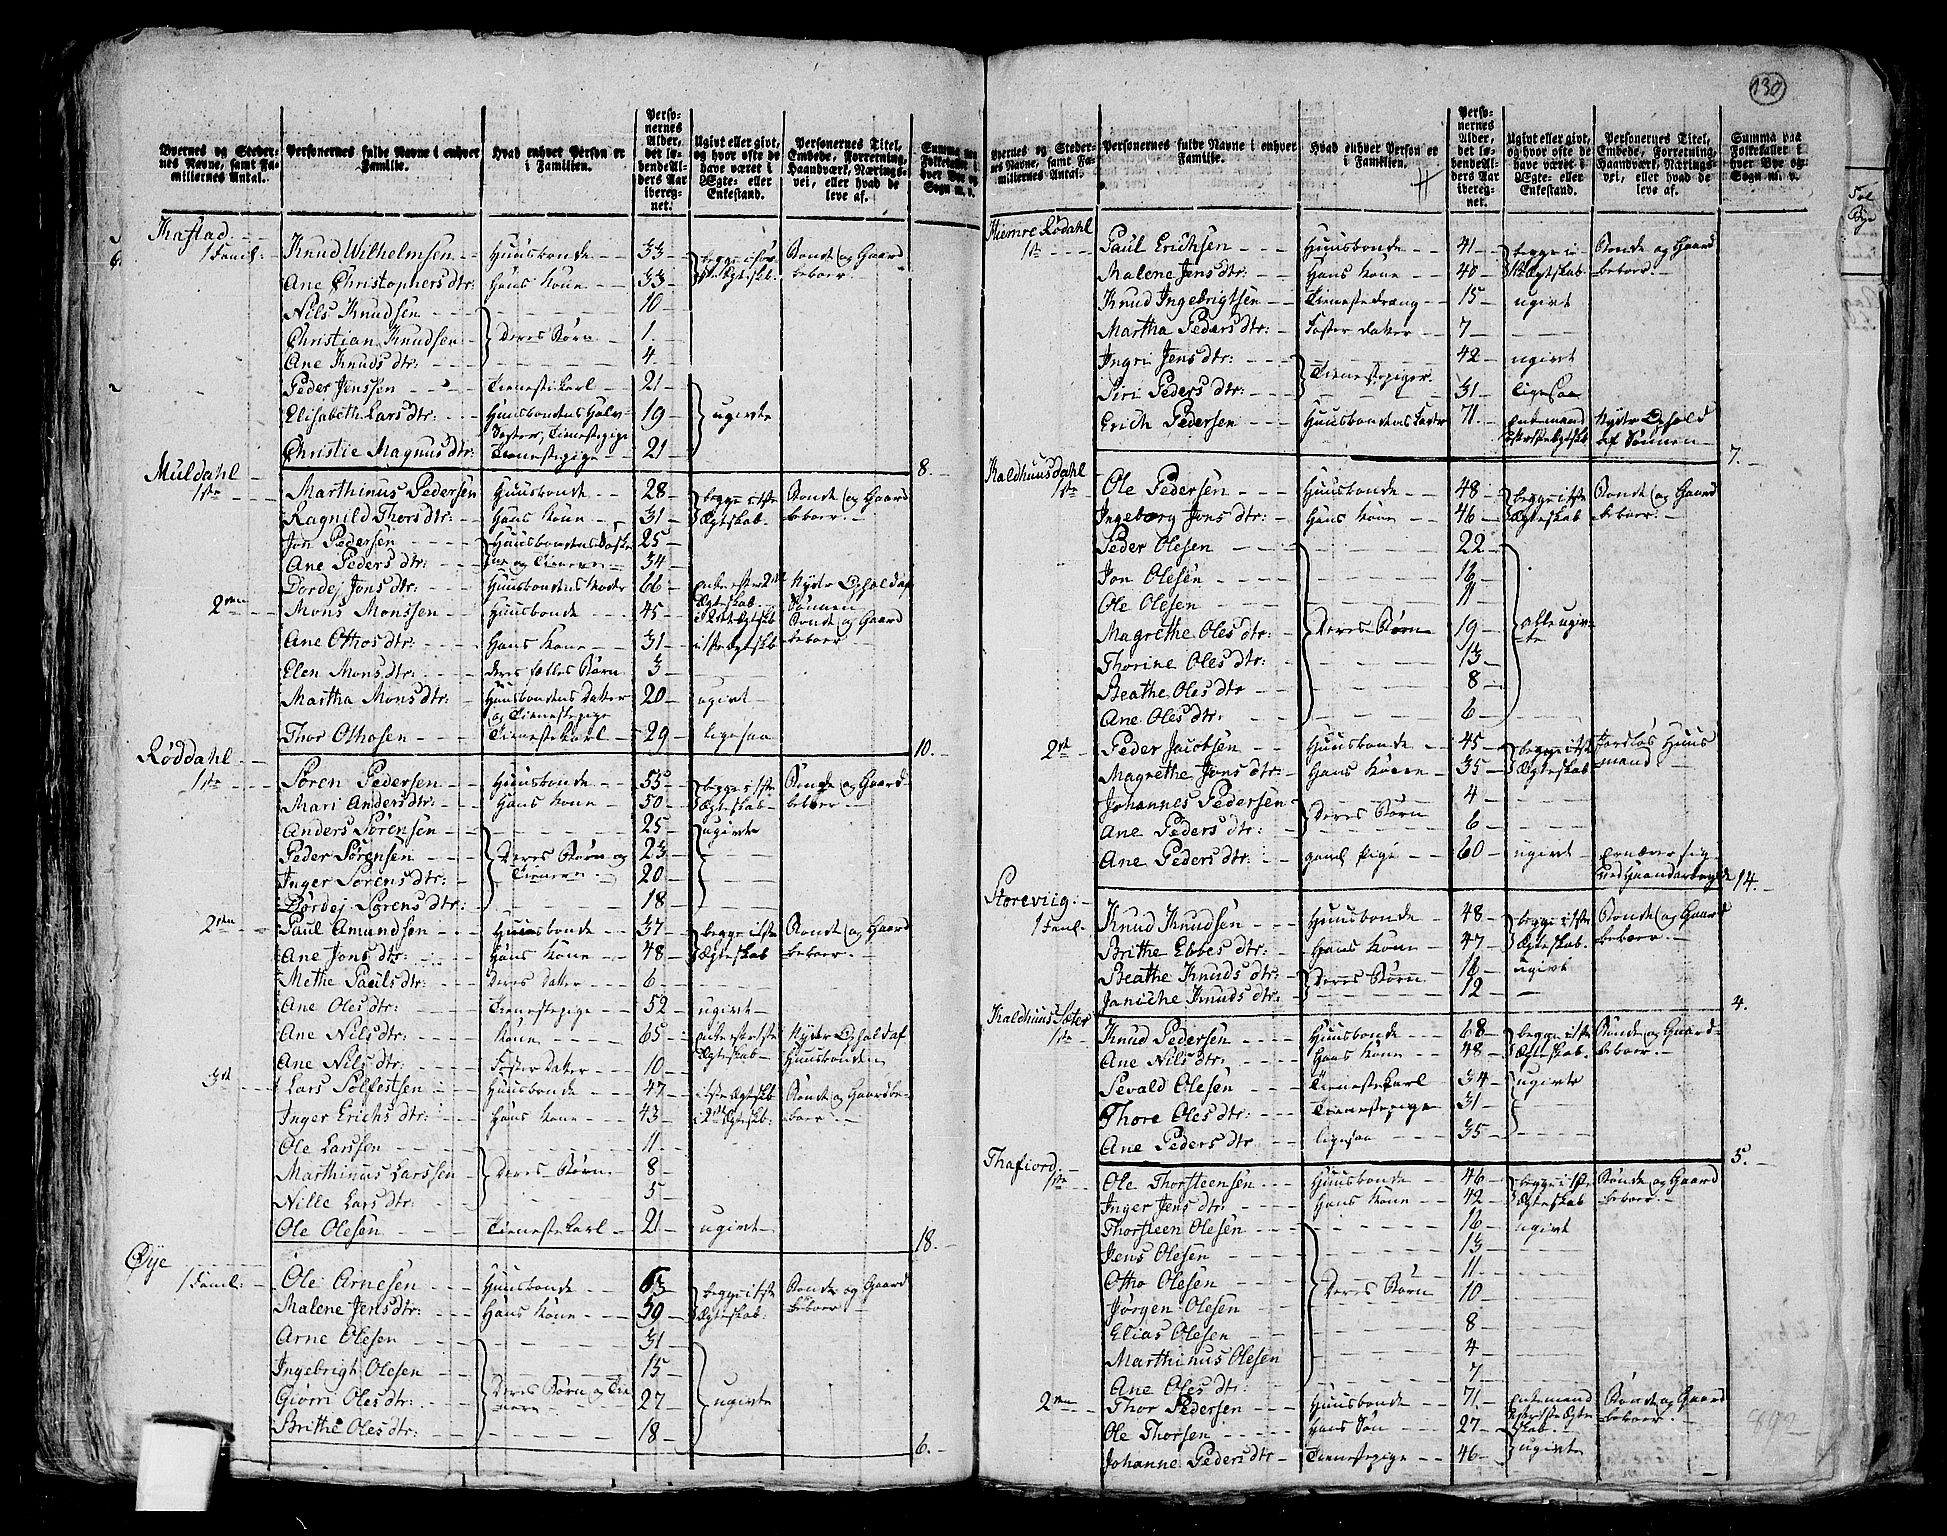 130
Byernes og Stedernes Navne, samt Familiernes Antal. Personernes fulde Navne i enhver Familie. Hvad enhver Person er i Familien. Personernes Alder, det løbende Alders Aar iberegnet. Ugivt eller givt, og hvor ofte de have været i Ægte- eller Enkestand. Personernes Titel, Embede, Forretning, Haandværk, Næringsvei, eller hvad de leve af. Summa paa Folketallet i hver Bye og Sogn m. v.
Kastad
1 Famil: Knud Wilhelmsen Huusbonde 33 begge i før- Bonde og Gaard
Ane Christophers dtr: Hans Kone 33 ste Ægteskb. beboer
Nils Knudsen 10
Christian Knudsen Deres Børn 1.
Ane Knuds dtr: 4
Peder Jenssen Tienestekarl 21
Elisabeth Lars dtr: Huusbondens Halv- 19 ugivte
Søster, Tienestepige
Christie Magnus dtr: Tienestepige 21
8.
Muldahl
1ste Marthinus Pedersen Huusbonde 28 begge i 1ste Bonde og Gaard
Ragnild Thors dtr: Hans Kone 31 Ægteskab. beboer
Jon Pedersen Huusbondens Søske 25
Ane Peders dtr: nde og Tienere 34
Dordej Jons dtr: Huusbondens Moder 66 Enke efter 2det Nyder Ophold af
Ægteskab Sønnen
2den Mons Monssen Huusbonde 45 i 2det Ægtskb Bonde og Gaard
Ane Othos dtr: Hans Kone 31 i 1ste Ægtskb beboer
Elen Mons dtr: Deres fælles Børn 3
Martha Mons dtr: Huusbondens Datter 20 ugivt
og Tienestepige
Thor Othosen Tienestekarl 29 ligesaa
10.
Røddahl
1ste Søren Pedersen Huusbonde 55 begge i 1ste Bonde og Gaard-
Mari Anders dtr: Hans Kone 50 Ægteskab beboer
Anders Sørensen 25 ugivte
Peder Sørensen Deres Børn og 23
Inger Sørens dtr: Tienere 20
Dordej Sørens dtr: 18
2den Paul Amundsen Huusbonde 37 begge i 1ste Bonde og Gaard
Ane Jons dtr: Hans Kone 48 Ægteskab beboer
Methe Pauls dtr: Deres Datter 6
Ane Oles dtr: Tienestepige 52 ugivt
Ane Nils dtr: Kone 65 Enke efter 1ste Nyder Ophold af
Ægteskab Huusbonden
Ane Nils dtr: Foster Datter 10
3die Lars Sølfestsen Huusbonde 47 i 1ste Ægtskb Bonde og Gaardbe-
Inger Erichs dtr: Hans Kone 43 i 2det Ægtskb. beboer
Ole Larssen 11
Marthinus Larssen Deres Børn 8
Nille Lars dtr: 5
Ole Olesen Tienestekarl 21 ugivt
18.
Øye
1 Famil: Ole Arnesen Huusbonde 63 begge i 1ste Bonde og Gaard
Malene Jens dtr: Hans Kone 59 Ægteskab beboer
Arne Olesen 31
Ingebrigt Olesen 15
Giørri Oles dtr: Deres Børn og Tie 27 ugivte
nere
Brithe Oles dtr: 18
6.
Byernes og Stedernes Navne, samt Familiernes Antal. Personernes fulde Navne i enhver Familie. Hvad enhver Person er i Familien. Personernes Alder, det løbende Alders Aar iberegnet. Ugivt eller givt, og hvor ofte de have været i Ægte- eller Enkestand. Personernes Titel, Embede, Forretning, Haandværk, Næringsvei, eller hvad de leve af. Summa paa Folketallet i hver Bye og Sogn m. v.
Hiemre Rødahl
1ste Paul Erichsen Huusbonde 41 begge i Bonde og Gaard
Malene Jens dtr: Hans Kone 40 1ste Ægtskab beboer
Knud Ingebrigtsen Tienestedræng 15 ugivt
Martha Peders dtr: Foster Datter 7
Ingri Jens dtr: 42 ugivt
Tienestepiger
Siri Peders dtr: 31 ligesaa
Erich Pedersen Huusbondens Fader 71 Enkemand Nyder Ophold
af Sønnen
7.
Kaldhuusdahl
1ste Ole Pedersen Huusbonde 48 begge i 1ste Bonde og Gaard
Ingeborg Jons dtr: Hans Kone 46 Ægteskab beboer
Peder Olesen 22
Jon Olesen 16
Ole Olesen 11
Magrethe Oles dtr: Deres Børn 19 alle ugiv-
te
Thorine Oles dtr: 13
Beathe Oles dtr 8
Ane Oles dtr: 6
2det Peder Jacobsen Huusbonde 45 begge i 1ste Jordløs Huus
Magrethe Jons dtr: Hans Kone 35 Ægteskab mand
Johannes Pedersen 4
Deres Børn
Ane Peders dtr: 6
Ane Peders dtr: gaml Pige 60 ugivt ernærer sig
ved Haandarbejde
14.
Storeviig:
1 Famil: Knud Knudsen Huusbonde 48 begge i 1ste Bonde og Gaard
Brithe Ebbes dtr: Hans Kone 47 Ægteskab. beboer
Beathe Knuds dtr: Deres Børn 16 ugivt
Janiche Knuds dtr: 12
4.
Kaldhuus Sæter
1ste Knud Pedersen Huusbonde 68 begge i 1ste Bonde og Gaard-
Ane Nils dtr: Hans Kone 48 Ægteskab. beboer
Sevald Olesen Tienestekarl 34 ugivte
Thore Oles dtr: Tienestepige 31
Ane Peders dtr ligesaa 35
5.
Thafiord
1ste Ole Thorsteensen Huusbonde 46 begge i 1ste Bonde og Gaard
Inger Jens dtr: Hans Kone 42 Ægteskab beboer
Thorsteen Olesen 16 ugivt
Jens Olesen 13
Otho Olesen 11
Jørgen Olesen Deres Børn 10
Elias Olesen 8
Marthinus Olesen 4
Ane Oles dtr: 7
2den Thor Pedersen Huusbonde 71 Enkemand Bonde og Gaard
Ole Thorsen Hans Søn 27 beboer
Johanne Peders dtr Tienestepige 46 ugivte